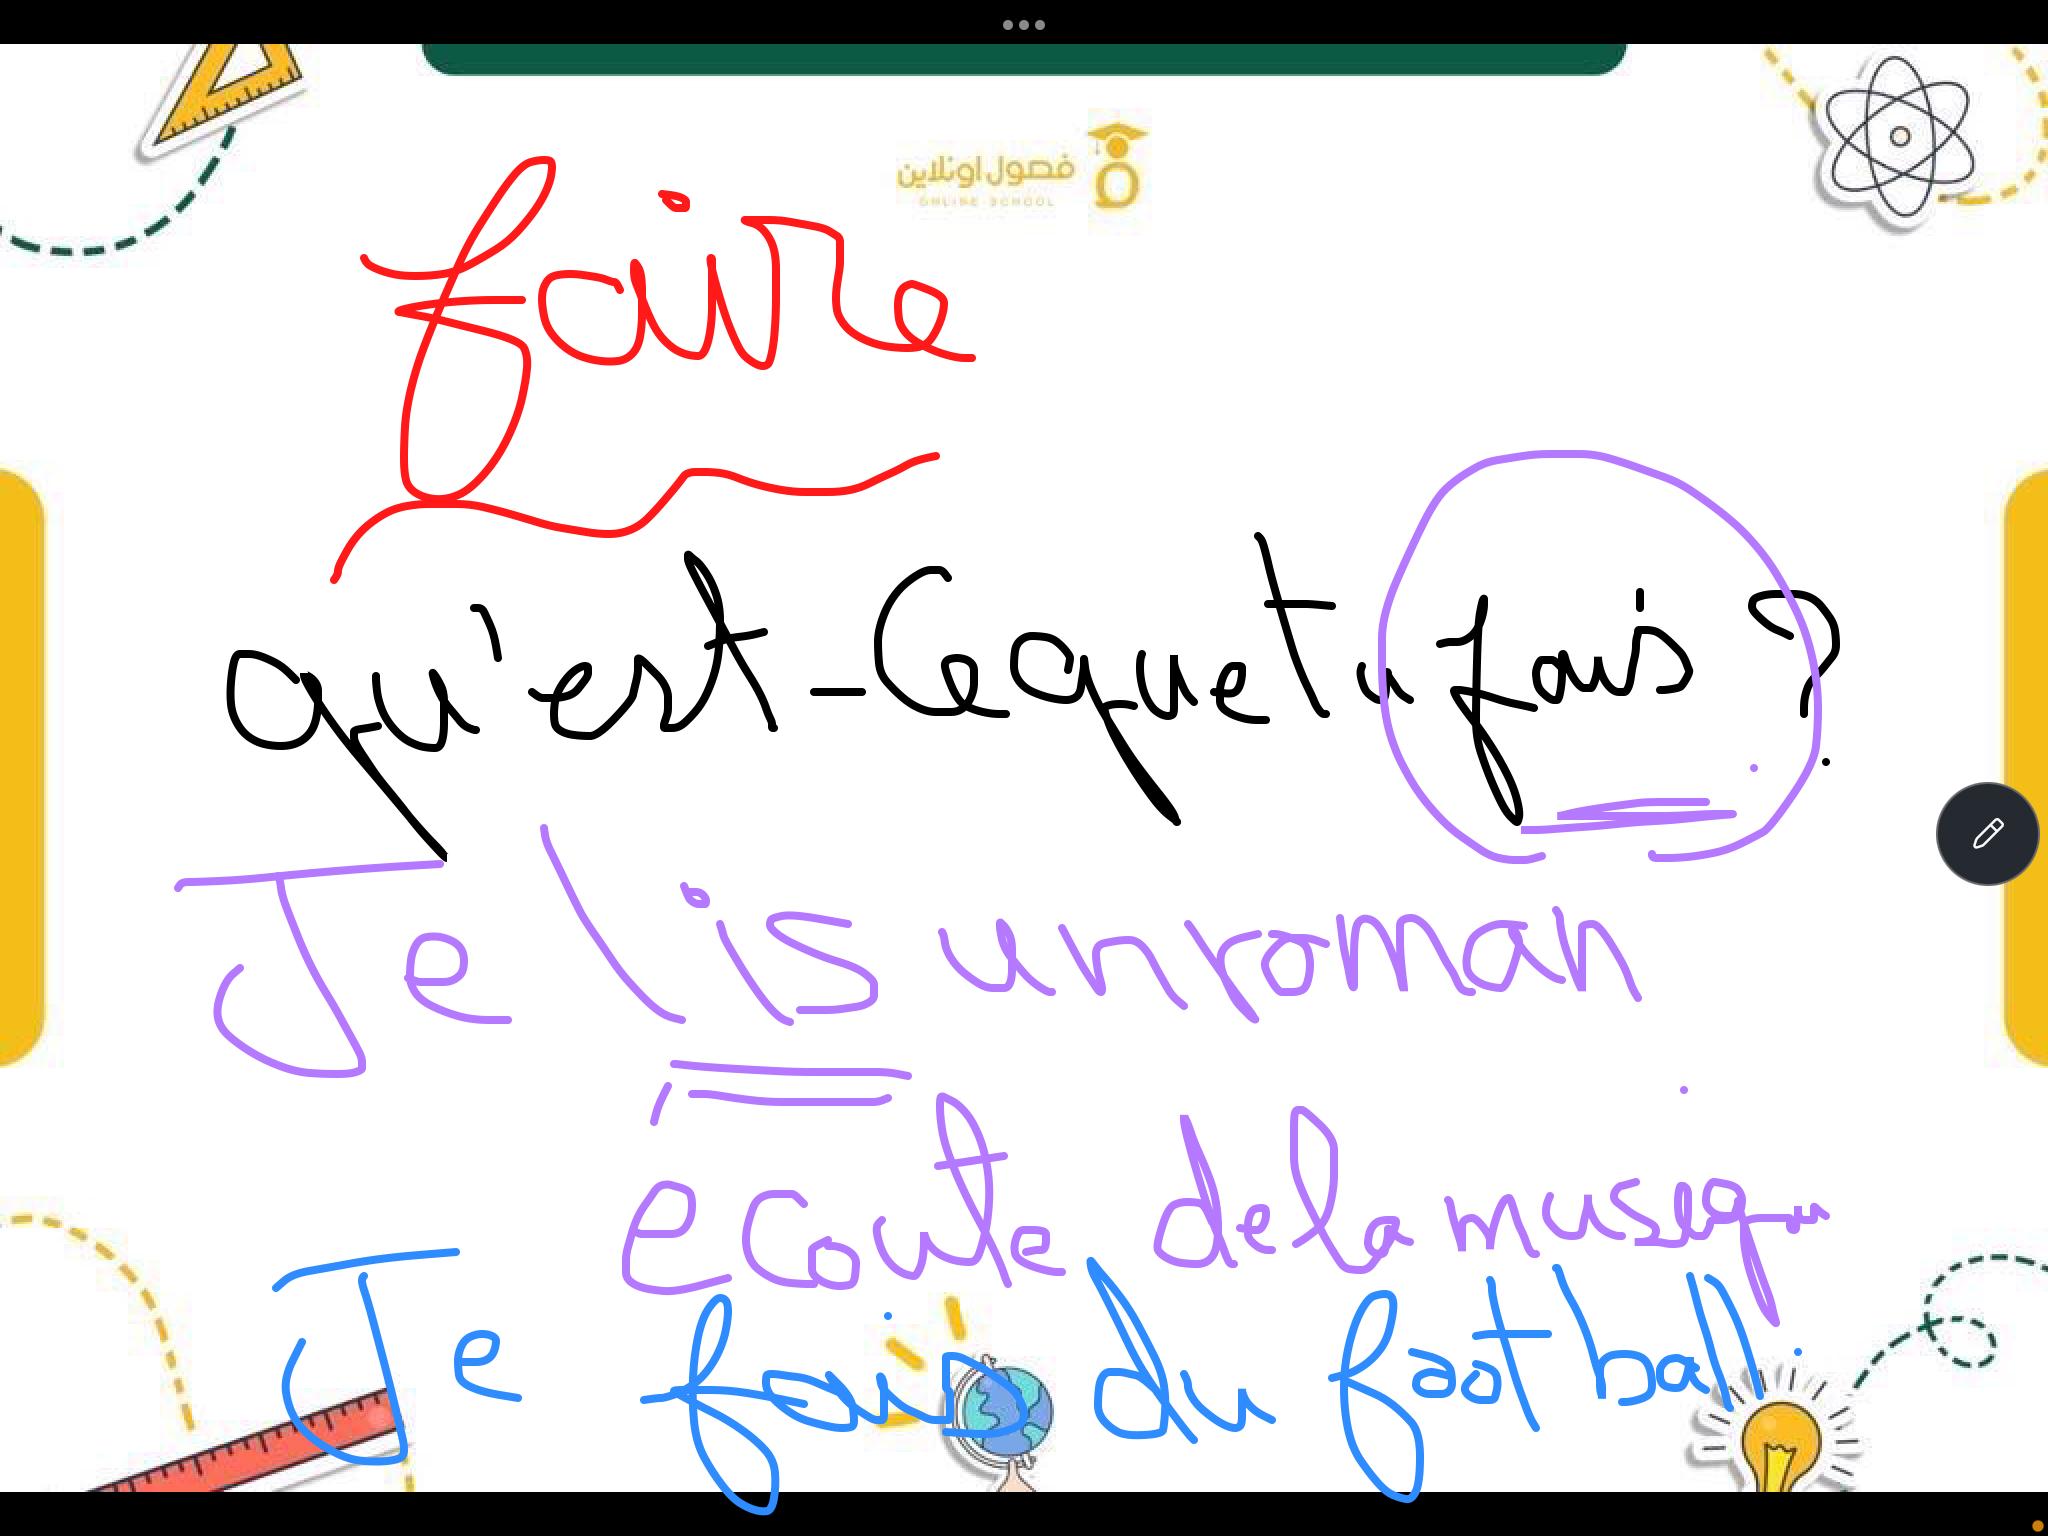 فصول اونلاين
ONLINE SCHOOL
faire
qu'est-ce que tu fais ?
Je lis un roman
écoute de la musiqu
Je fais du football.